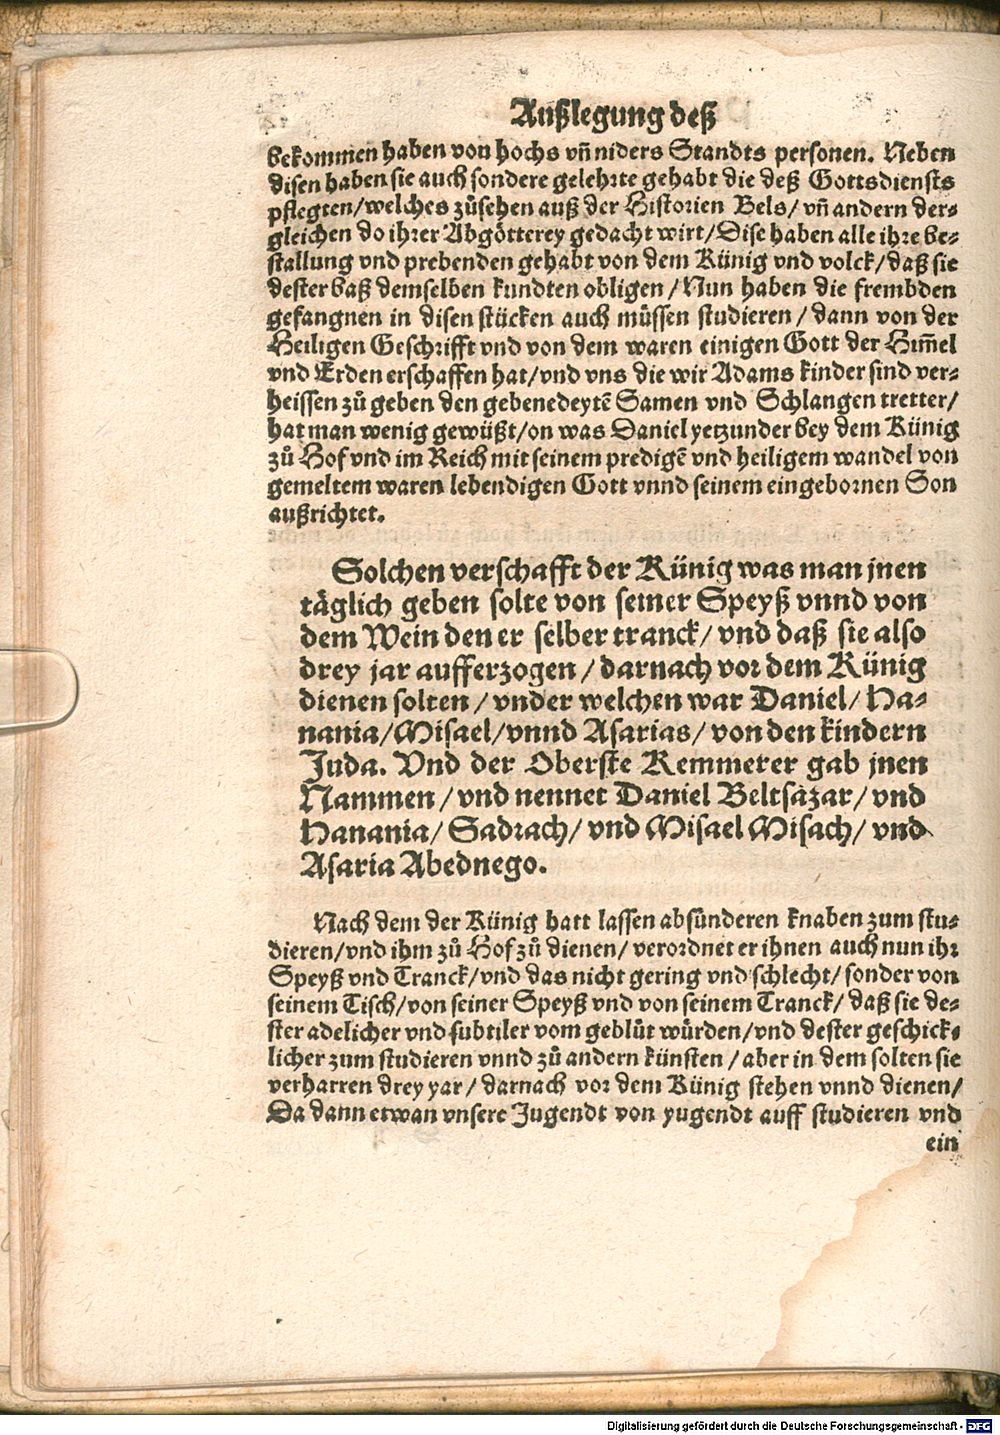 Außlegung deß
bekommen haben von hochs vn̄ niders Standts personen. Neben
disen haben sie auch sondere gelehrte gehabt die deß Gottsdiensts
pflegten/welches zůsehen auß der Historien Bels/vn̄ andern der-
gleichen do ihrer Abgötterey gedacht wirt/Dise haben alle ihre be-
stallung vnd prebenden gehabt von dem Künig vnd volck/daß sie
dester baß demselben kundten obligen/Nun haben die frembden
gefangnen in disen stücken auch müssen studieren/dann von der
Heiligen Geschrifft vnd von dem waren einigen Gott der Him̄el
vnd Erden erschaffen hat/vnd vns die wir Adams kinder sind ver-
heissen zů geben den gebenedeytē Samen vnd Schlangen tretter/
hat man wenig gewüßt/on was Daniel yetzunder bey dem Künig
zů Hof vnd im Reich mit seinem predigē vnd heiligem wandel von
gemeltem waren lebendigen Gott vnnd seinem eingebornen Son
außrichtet.
Solchen verschafft der Künig was man jnen
täglich geben solte von seiner Speyß vnnd von
dem Wein den er selber tranck/vnd daß sie also
drey jar aufferzogen/darnach vor dem Künig
dienen solten/vnder welchen war Daniel/Ha-
nania/Misael/vnnd Asarias/von den kindern
Juda. Vnd der Oberste Kemmerer gab jnen
Nammen/vnd nennet Daniel Beltsazar/vnd
Hanania/Sadrach/vnd Misael Misach/vnd
Asaria Abednego.
Nach dem der Künig hatt lassen absünderen knaben zum stu-
dieren/vnd ihm zů Hof zů dienen/verordnet er ihnen auch nun ihr
Speyß vnd Tranck/vnd das nicht gering vnd schlecht/sonder von
seinem Tisch/von seiner Speyß vnd von seinem Tranck/daß sie de-
ster adelicher vnd subtiler vom geblüt würden/vnd dester geschick-
licher zum studieren vnnd zů andern künsten/aber in dem solten sie
verharren drey yar/darnach vor dem Künig stehen vnnd dienen/
Da dann etwan vnsere Jugendt von yugendt auff studieren vnd
ein
Digitalisierung gefördert durch die Deutsche Forschungsgemeinschaft - DFG